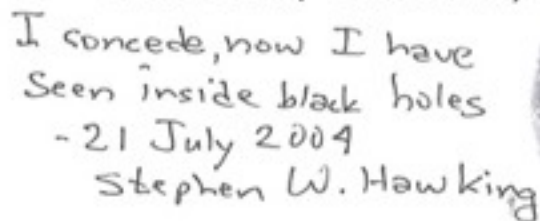 I concede, now I have
seen inside black holes
- 21 July 2004
Stephen W. Hawking